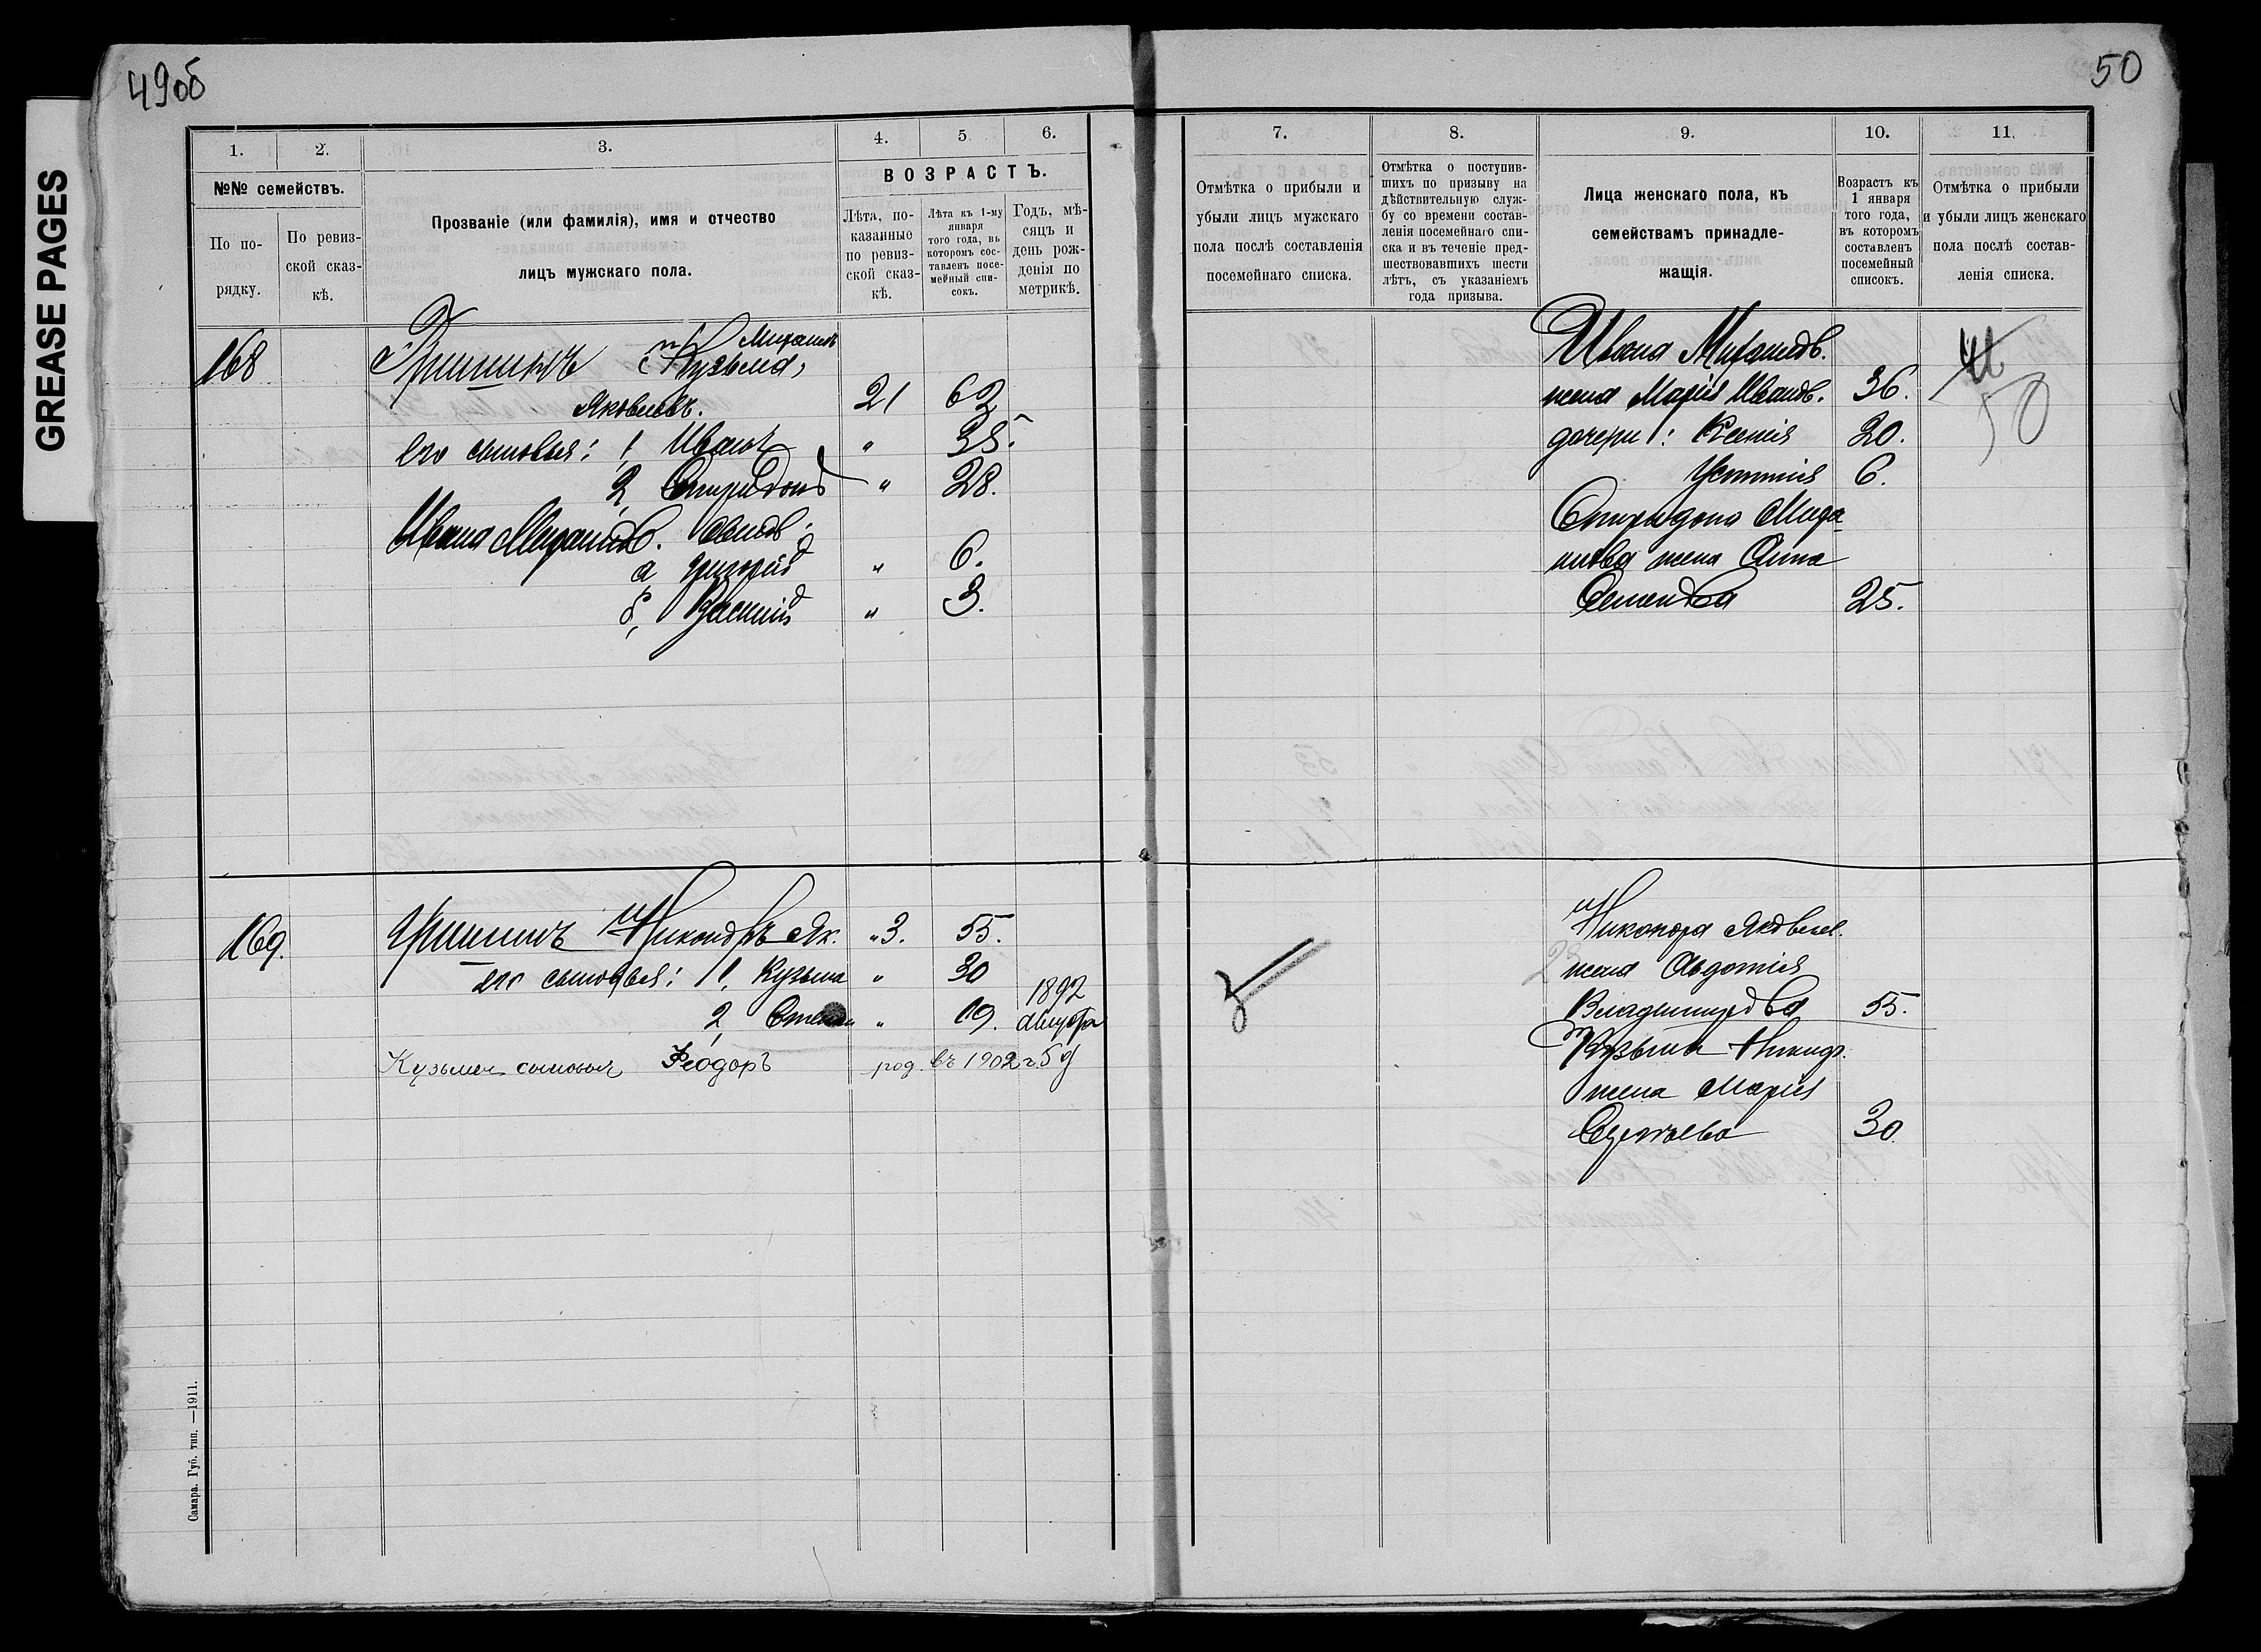 49об
50
GREASE PAGES
1.
2.
3.
4.
5
6.
№№ семействъ.
По по-
рядку.
По ревиз-
ской сказ-
кѣ.
Прозваніе (или фамилія), имя и отчество
лицъ мужскаго пола.
ВОЗРАСТЪ.
Лѣта, по-
казанные
по ревиз-
ской сказ-
кѣ.
Лѣта къ 1-му
января
того года, въ
которомъ сос-
тавленъ посе-
мейный спи-
сокъ.
Годъ, мѣ-
сяцъ и
день рож-
денія по
метрикѣ.
168
Михаилъ
Гришинъ Кузьма,
Яковлевъ. 21 62
его сыновья: 1, Иванъ " 38.
2, Спиридонъ " 28.
Ивана Михайлов. сынов.
а, Григорій " 6.
б, Василій " 3.
169.
Гришинъ Никондръ Як. "3. 55.
его сыновья: 1, Кузьма " 30
2, Степан " 19. 1892
августа
Кузьмы сыновья Феодоръ род. въ 1902 г. 5 ф
Самара. Губ. тип. —1911.
7.
8.
9.
10.
11.
Отмѣтка о прибыли и
убыли лицъ мужскаго
пола послѣ составленія
посемейнаго списка.
Отмѣтка о поступив-
шихъ по призыву на
дѣйствительную служ-
бу со времени состав-
ленія посемейнаго спи-
ска и въ теченіе пред-
шествовавшихъ шести
лѣтъ, съ указаніемъ
года призыва.
Лица женскаго пола, къ
семействамъ принадле-
жащія.
Возрастъ къ
1 января
того года,
въ которомъ
составленъ
посемейный
списокъ.
Отмѣтка о прибыли
и убыли лицъ женскаго
пола послѣ состав-
ленія списка.
Ивана Михайлов.
жена Марія Иванов. 36.
дочери: Ксенія 20.
Устинія 6.
Спиридона Миха-
йлова жена Анна
Семенова 25.
50
Никонора Яковлев.
жена Авдотія
Владимирова 55.
Кузьмы Никандр.
жена Марія
Сергѣева 30.